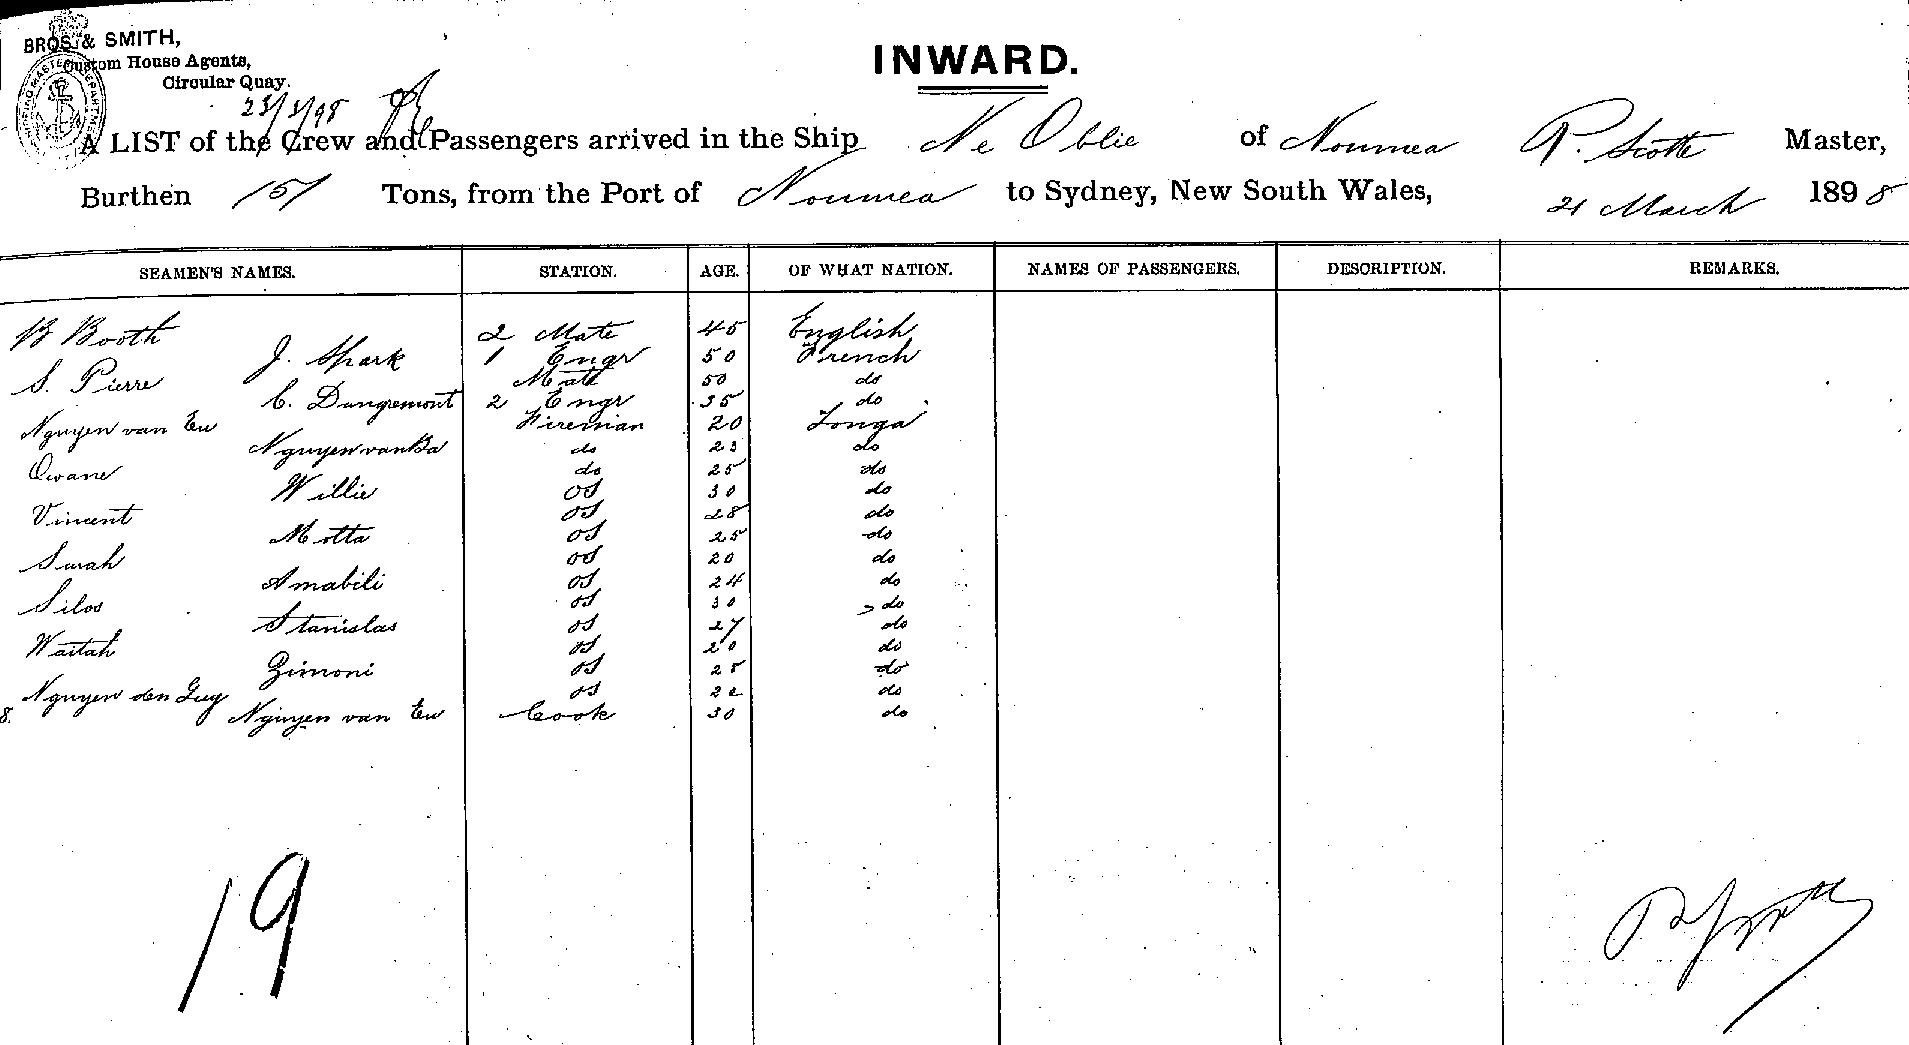 BROS. & SMITH,
Custom House Agents,
Circular Quay.
INWARD.
23/3/98
A LIST of the Crew and Passengers arrived in the Ship Ne Oblie of Noumea P. Scott Master,
Burthen 151 Tons, from the Port of Noumea to Sydney, New South Wales, 21 March 1898
SEAMEN'S NAMES. STATION. AGE. OF WHAT NATION. NAMES OF PASSENGERS. DESCRIPTION. REMARKS.
B Booth 2 Mate 45 English
J. Shark 1 Engr 50 French
S. Pierre Mate 50 do
C. Dangremont 2 Engr 35 do
Nguyen van Eu Fireman 20 Tonga
Nguyen van Ba do 23 do
Owane do 25 do
Willie OS 30 do
Vincent OS 28 do
Motta OS 25 do
Sarah OS 20 do
Amabili OS 24 do
Silos OS 30 do
Stanislas OS 27 do
Waitah OS 20 do
Zimoni OS 28 do
Nguyen den Guy OS 22 do
8. Nguyen van Eu Cook 30 do
19